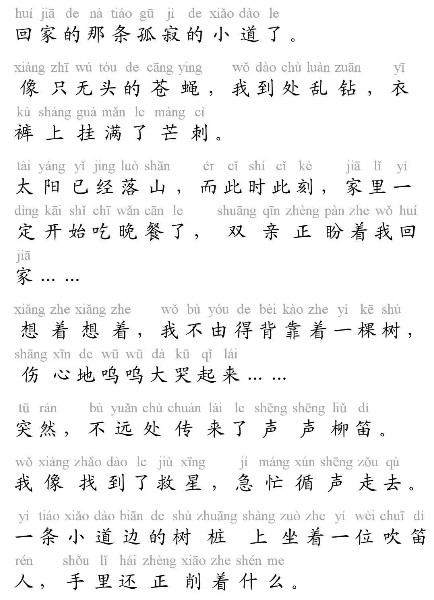 huí jiā de nà tiáo gū jì de xiǎo dào le
回家的那条孤寂的小道了。
xiàng zhī wú tóu de cāng ying wǒ dào chù luàn zuān yī
像只无头的苍蝇，我到处乱钻，衣
kù shàng guà mǎn le máng cì
裤上挂满了芒刺。
tài yáng yǐ jīng luò shān ér cǐ shí cǐ kè jiā lǐ yí
太阳已经落山，而此时此刻，家里一
dìng kāi shǐ chī wǎn cān le shuāng qīn zhèng pàn zhe wǒ huí
定开始吃晚餐了，双亲正盼着我回
jiā
家……
xiǎng zhe xiǎng zhe wǒ bù yóu de bèi kào zhe yì kē shù
想着想着，我不由得背靠着一棵树，
shāng xīn de wū wū dà kū qǐ lái
伤心地呜呜大哭起来……
tū rán bù yuǎn chù chuán lái le shēng shēng liǔ dí
突然，不远处传来了声声柳笛。
wǒ xiàng zhǎo dào le jiù xīng jí máng xún shēng zǒu qù
我像找到了救星，急忙循声走去。
yì tiáo xiǎo dào biān de shù zhuāng shàng zuò zhe yí wèi chuī dí
一条小道边的树桩 上坐着一位吹笛
rén shǒu lǐ hái zhèng xiāo zhe shén me
人，手里还正削着什么。